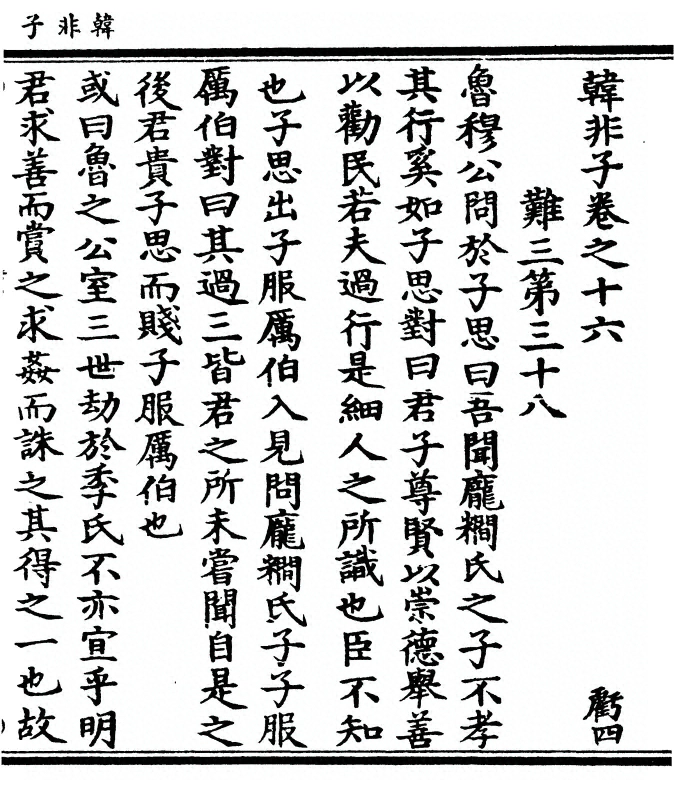 韓非子
韓非子卷之十六
虧四
難三第三十八
魯穆公問於子思曰吾聞龐𥻘氏之子不孝
其行奚如子思對曰君子尊賢以崇德舉善
以勸民若夫過行是細人之所識也臣不知
也子思出子服厲伯入見問龐𥻘氏子子服
厲伯對曰其過三皆君之所未嘗聞自是之
後君貴子思而賤子服厲伯也
或曰魯之公室三世劫於季氏不亦宜乎明
君求善而賞之求姦而誅之其得之一也故